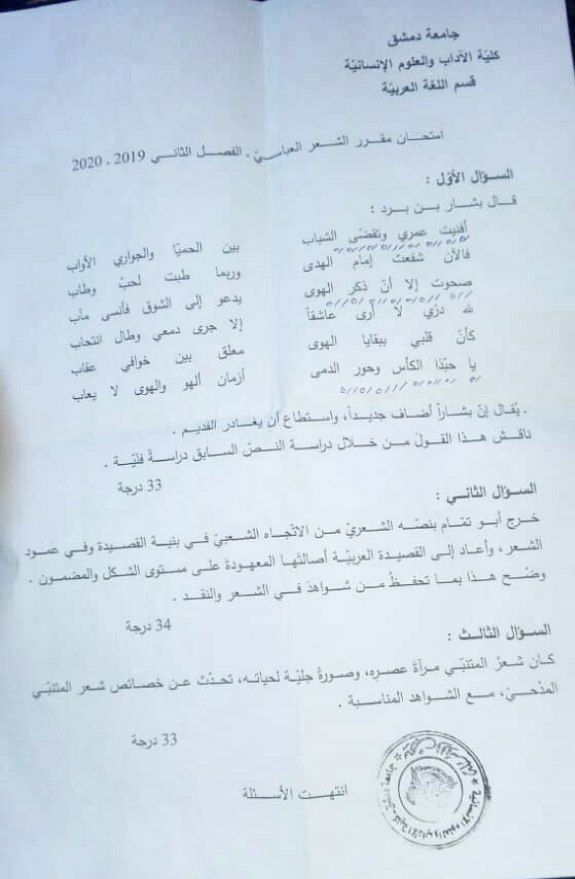 جامعة دمشق
كليّة الآداب والعلوم الإنسانيّة
قسم اللغة العربيّة
امتحان مقرر الشعر العباسيّ . الفصل الثاني 2019 . 2020
السؤال الأوّل :
قال بشار بن برد :
أفنيت عمري وتقضّى الشباب بين الحميّا والجواري الأواب
فالآن شفعت إمام الهدى وربما طبت لحبّ وطاب
صحوت إلا أنّ ذكر الهوى يدعو إلى الشوق فأنسى مآب
لله درّي لا أرى عاشقاً إلا جرى دمعي وطال انتحاب
كأنّ قلبي ببقايا الهوى معلق بين خوافي عقاب
يا حبّذا الكأس وحور الدمى أزمان ألهو والهوى لا يعاب
. يُقال إنّ بشاراً أضاف جديداً، واستطاع أن يغادر القديم .
ناقش هذا القول من خلال دراسة النصّ السابق دراسةً فنّيّة .
33 درجة
السؤال الثاني :
خرج أبو تمّام بنصّه الشعريّ من الاتّجاه الشعبيّ في بنية القصيدة وفي عمود
الشعر، وأعاد إلى القصيدة العربيّة أصالتها المعهودة على مستوى الشكل والمضمون .
وضّح هذا بما تحفظُ من شواهدَ في الشعر والنقد .
34 درجة
السؤال الثالث :
كان شعرُ المتنبّي مرآةَ عصره، وصورةً جليّة لحياته، تحدّث عن خصائص شعر المتنبّي
المدْحيّ، مع الشواهد المناسبة .
33 درجة
انتهت الأسئلة